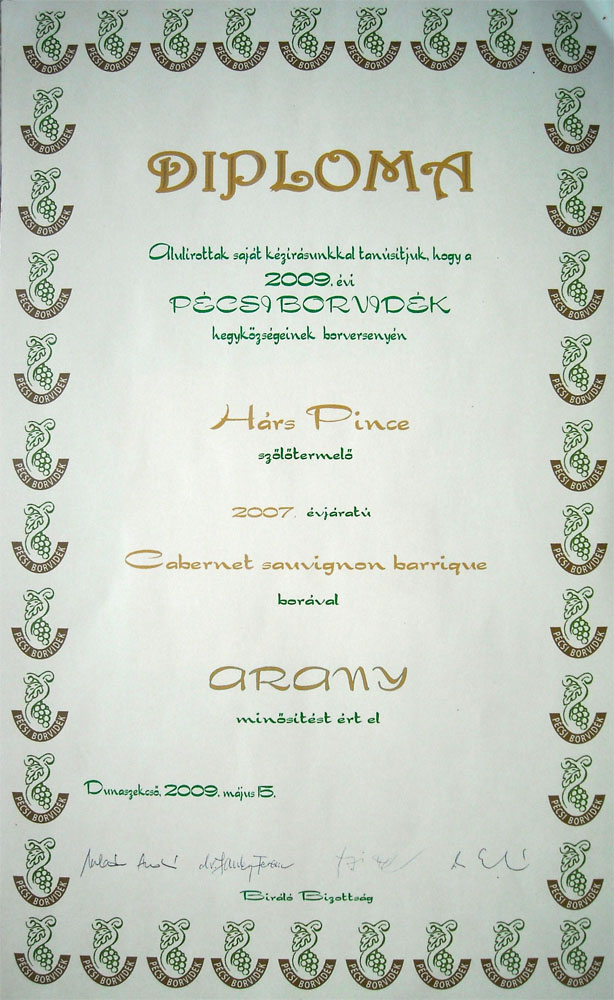 DIPLOMA
Alulírottak saját kézírásunkkal tanúsítjuk, hogy a
2009. évi
PÉCSI BORVIDÉK
hegyközségeinek borversenyén
Hárs Pince
szőlőtermelő
2007. évjáratú
Cabernet sauvignon barrique
borával
ARANY
minősítést ért el
Dunaszekcső, 2009. május 15.
Bíráló Bizottság
PÉCSI BORVIDÉK